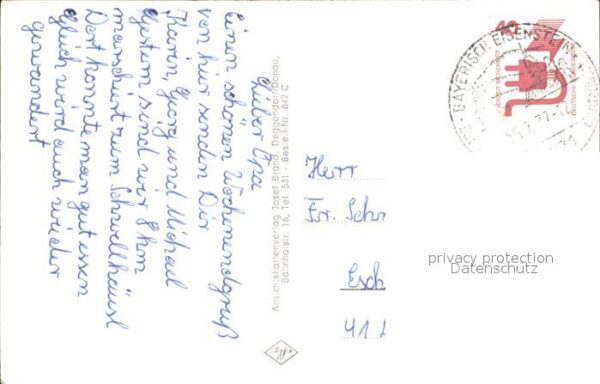 Lieber Opa
Einen schönen Wochenendgruß
von hier senden Dir
Karin, Georg und Michael
Gestern sind wir 8 km
marschiert zum Schwellhäusl
Dort konnte man gut essen
Gleich wird auch wieder
gewandert
Ansichtskartenverlag Josef Brand, Deggendorf/Donau,
Bahnhofstr. 16, Tel. 531 · Bestell-Nr. 842 C
40
BAYERISCH EISENSTEIN
Herr
Fr. Schr
Esch
41
privacy protection
Datenschutz